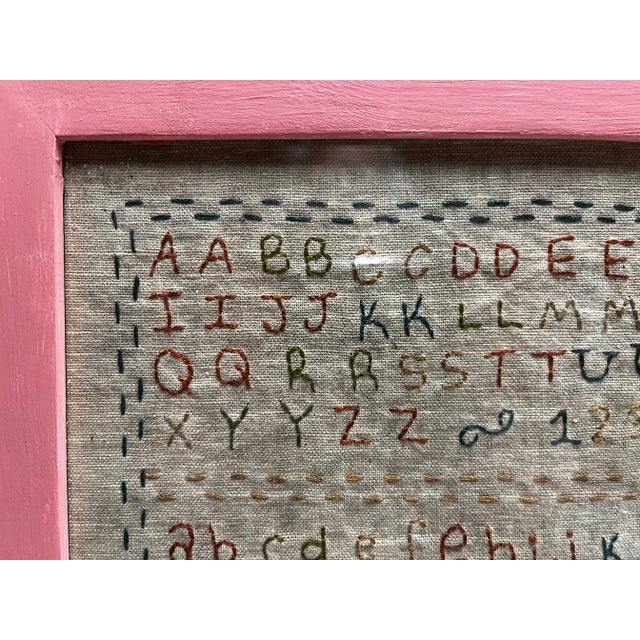 A A B B C C D D E E
I I J J K K L L M M
Q Q R R S S T T U U
X Y Y Z Z 1 2 3
a b c d e f g h i j k